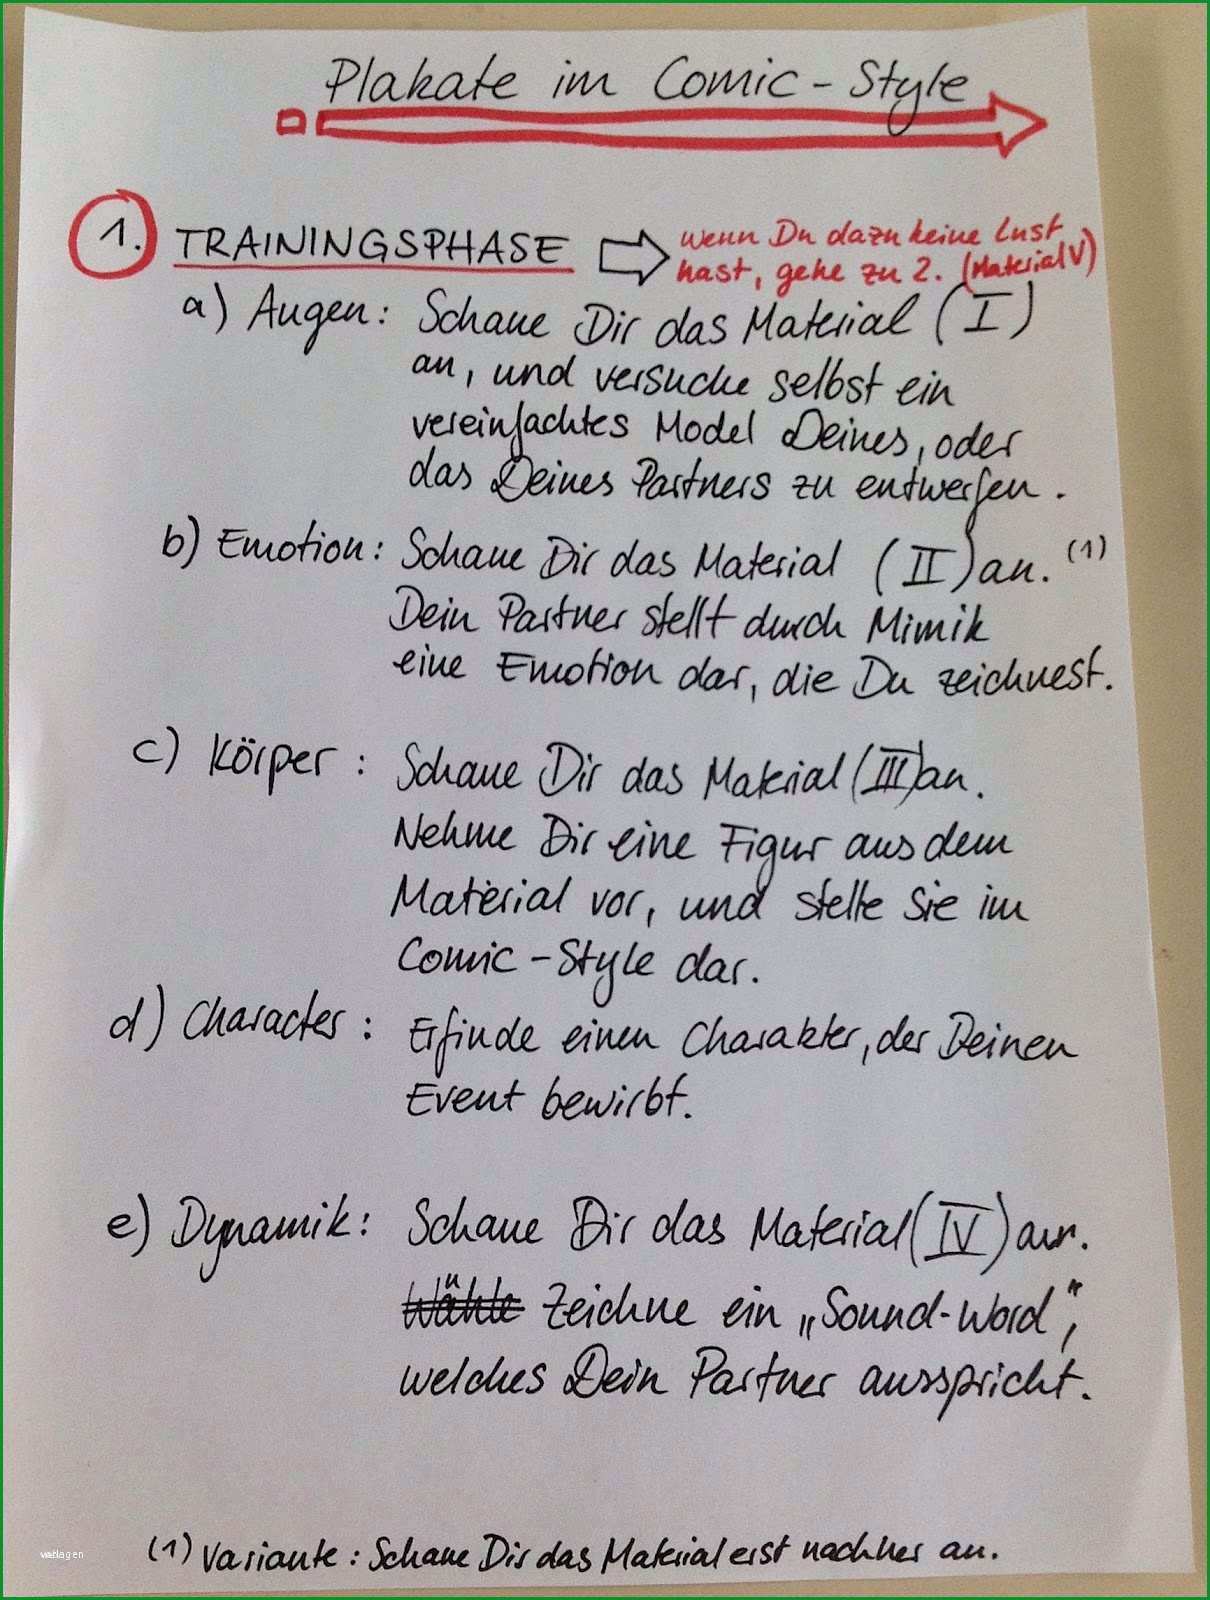 Plakate im Comic-Style
1. TRAININGSPHASE wenn Du dazu keine Lust
hast, gehe zu 2. (Material V)
a) Augen: Schaue Dir das Material (I)
an, und versuche selbst ein
vereinfachtes Model Deines, oder
das Deines Partners zu entwerfen.
b) Emotion: Schaue Dir das Material (II) an. (1)
Dein Partner stellt durch Mimik
eine Emotion dar, die Du zeichnest.
c) Körper: Schaue Dir das Material (III) an.
Nehme Dir eine Figur aus dem
Material vor, und stelle Sie im
Comic-Style dar.
d) Character: Erfinde einen Charakter, der Deinen
Event bewirbt.
e) Dynamik: Schaue Dir das Material (IV) an.
Wähle Zeichne ein „Sound-Word",
welches Dein Partner ausspricht.
(1) Variante: Schaue Dir das Material erst nachher an.